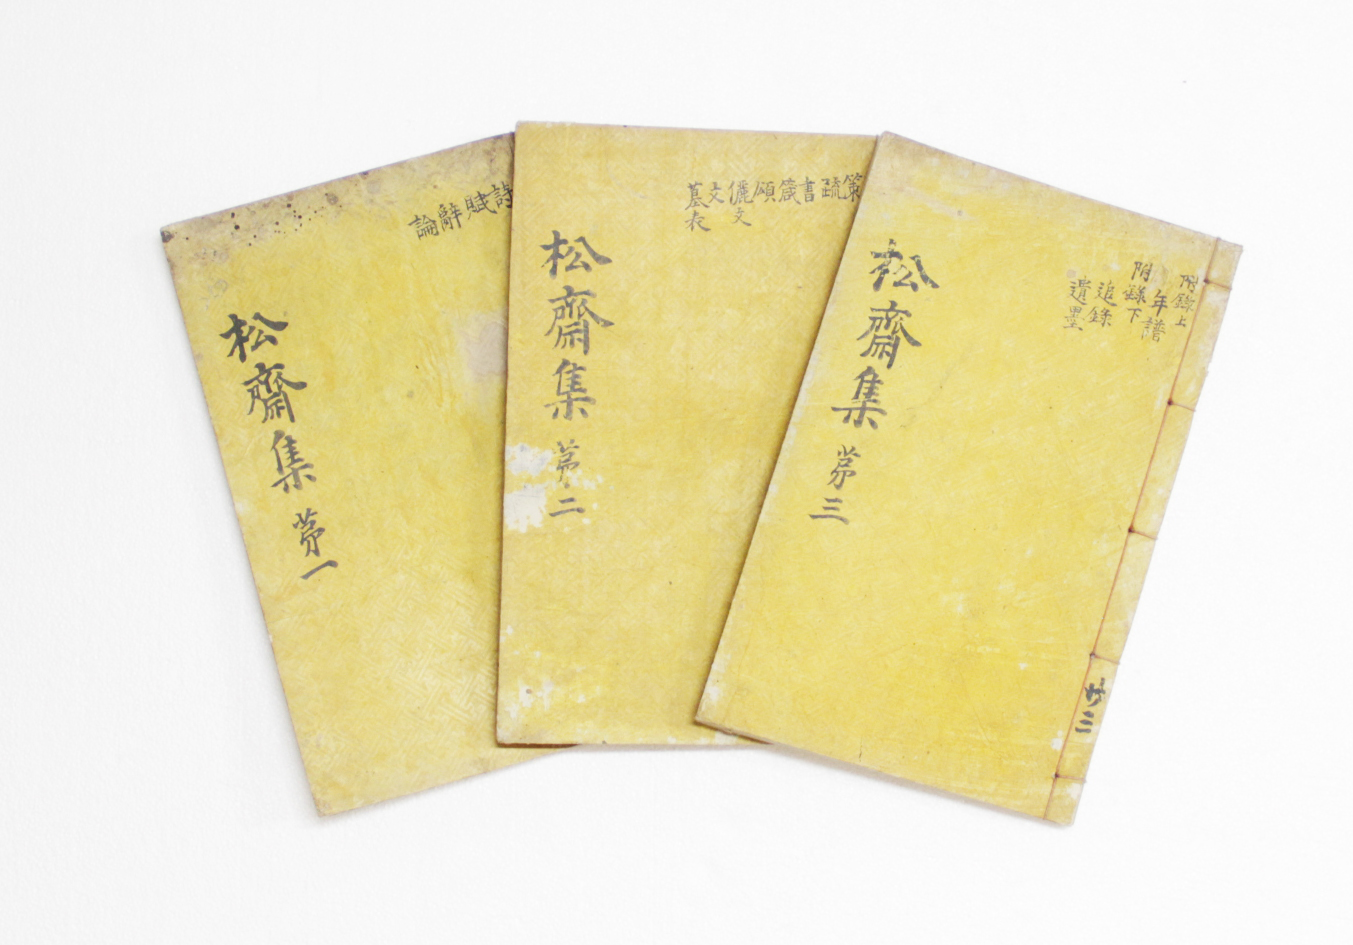 詩
賦
辭
論
松齋集 苐一
策
疏
書
箴
頌
儷文
文
墓表
松齋集 苐二
附錄上
年譜
附錄下
追錄
遺墨
松齋集 苐三
共三